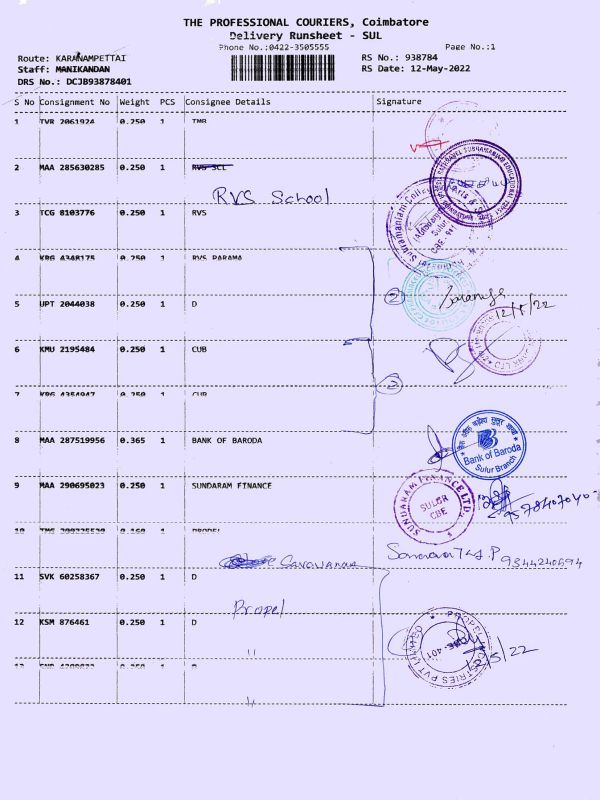 THE PROFESSIONAL COURIERS, Coimbatore
Delivery Runsheet - SUL
Phone No.:0422-3505555
Page No.:1
Route: KARANAMPETTAI
RS No.: 938784
Staff: MANIKANDAN
RS Date: 12-May-2022
DRS No.: DCJB93878401
S No Consignment No Weight PCS Consignee Details Signature
1 TVR 2061924 0.250 1 TMB
2 MAA 285630285 0.250 1 RVS SCL
RVS School
3 TCG 8103776 0.250 1 RVS
4 KRG 4348175 0.250 1 RVS PARAMA
2
5 UPT 2044038 0.250 1 D
12/5/22
6 KMU 2195484 0.250 1 CUB
7 KRG 4354947 0.250 1 CUB
2
8 MAA 287519956 0.365 1 BANK OF BARODA
Bank of Baroda
Sulur Branch
9 MAA 290695023 0.250 1 SUNDARAM FINANCE
SUNDARAM FINANCE LTD.
SULUR
CBE
10 0.160 1 PROPEL
9344240694
11 SVK 60258367 0.250 1 D
Propel
12 KSM 876461 0.250 1 D
"
12/5/22
13 0.250 1 D
"